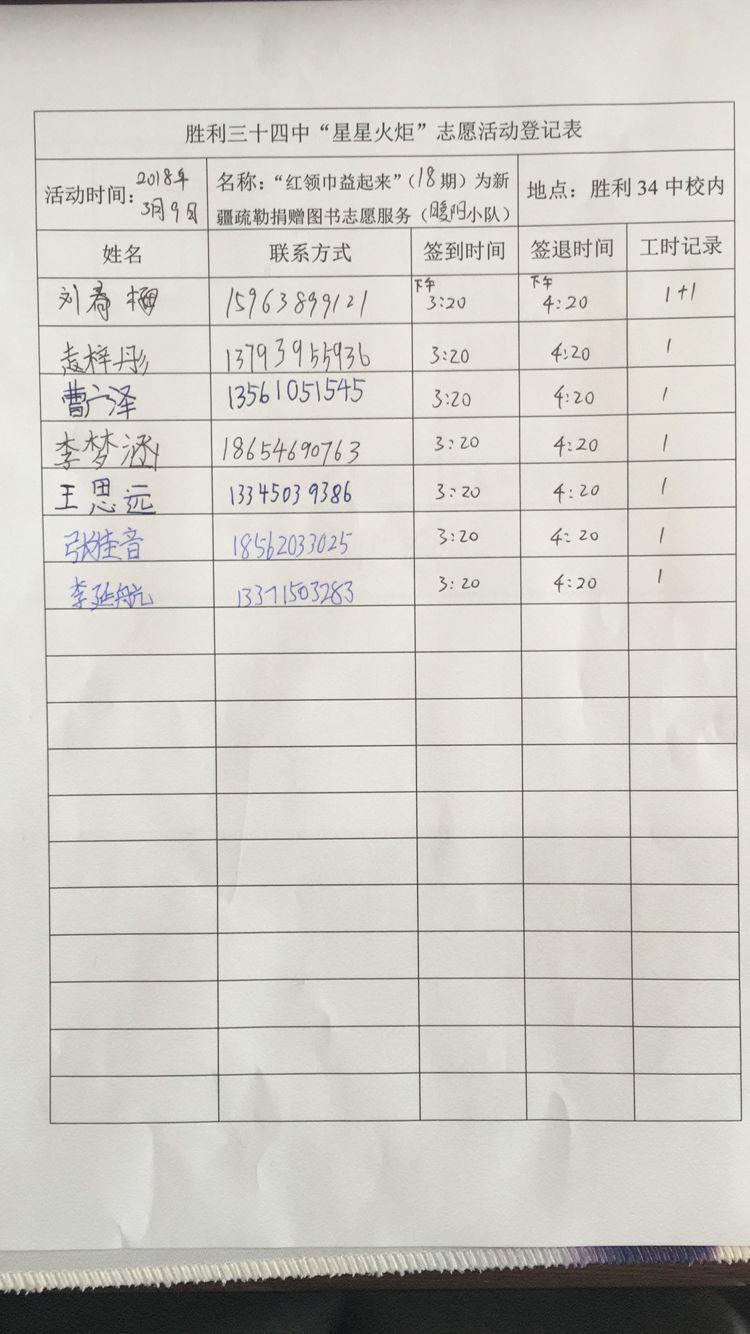 胜利三十四中“星星火炬”志愿活动登记表
活动时间：2018年3月9日
名称：“红领巾益起来”（18期）为新
疆疏勒捐赠图书志愿服务（暖阳小队）
地点：胜利34中校内
姓名 联系方式 签到时间 签退时间 工时记录
刘春梅 15963899121 下午3:20 下午4:20 1+1
袁梓彤 13793955936 3:20 4:20 1
曹广泽 13561051545 3:20 4:20 1
李梦涵 18654690763 3:20 4:20 1
王思远 13345039386 3:20 4:20 1
张佳音 18562033025 3:20 4:20 1
李延航 13371503283 3:20 4:20 1